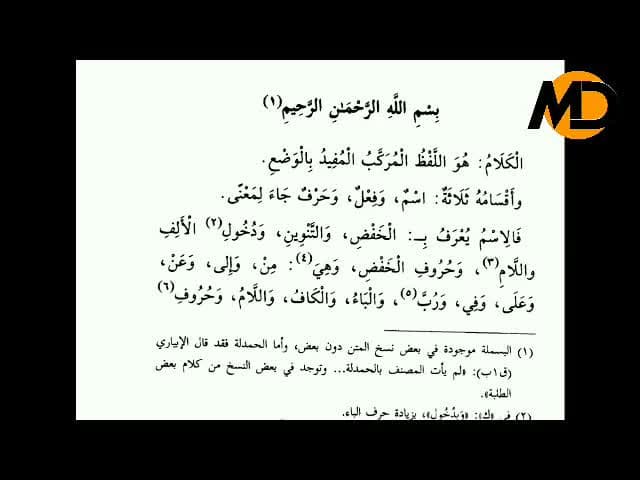 MD
بِسْمِ اللَّهِ الرَّحْمَـٰنِ الرَّحِيمِ(١)
الْكَلَامُ: هُوَ اللَّفْظُ الْمُرَكَّبُ الْمُفِيدُ بِالْوَضْعِ.
وأَقْسَامُهُ ثَلَاثَةٌ: اسْمٌ، وَفِعْلٌ، وَحَرْفٌ جَاءَ لِمَعْنًى.
فَالِاسْمُ يُعْرَفُ بِـ: الْخَفْضِ، وَالتَّنْوِينِ، وَدُخُولِ(٢) الْأَلِفِ
واللَّامِ(٣)، وَحُرُوفِ الْخَفْضِ، وَهِيَ(٤): مِنْ، وَإِلى، وَعَنْ،
وَعَلَى، وَفِي، وَرُبَّ(٥)، وَالْبَاءُ، وَالْكَافُ، وَاللَّامُ، وَحُرُوفِ(٦)
(١) البسملة موجودة في بعض نسخ المتن دون بعض، وأما الحمدلة فقد قال الإبياري
(ق١ب): «لم يأت المصنف بالحمدلة... وتوجد في بعض النسخ من كلام بعض
الطلبة».
(٢) في «ك»: «وَبِدُخُولِ»، بزيادة حرف الباء.